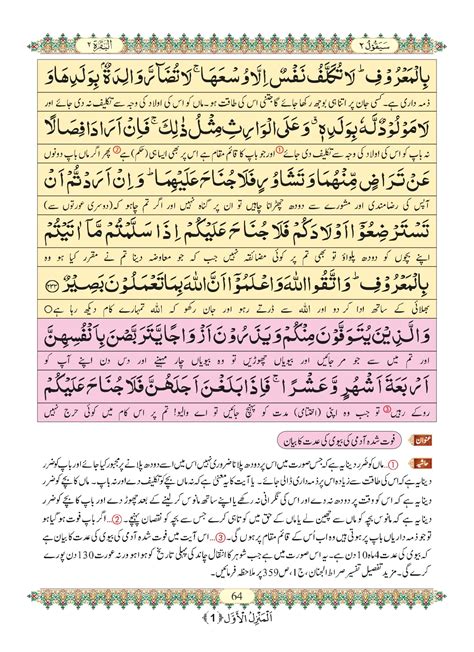 سَیَقُوْلُ ۲
اَلْبَقَرَۃ ۲
بِالْمَعْرُوْفِ ؕ لَا تُكَلَّفُ نَفْسٌ اِلَّا وُسْعَهَا ۚ لَا تُضَآرَّ وَالِدَةٌۢ بِوَلَدِهَا وَ
ذمہ داری ہے۔ کسی جان پر اتنا ہی بوجھ رکھا جائے گا جتنی اس کی طاقت ہو۔ ماں کو اس کی اولاد کی وجہ سے تکلیف نہ دی جائے اور
لَا مَوْلُوْدٌ لَّهٗ بِوَلَدِهٖ ۗ وَ عَلَى الْوَارِثِ مِثْلُ ذٰلِكَ ۚ فَاِنْ اَرَادَا فِصَالًا
نہ باپ کو اس کی اولاد کی وجہ سے تکلیف دی جائے① اور جو باپ کا قائم مقام ہے اس پر بھی ایسا ہی (حکم) ہے② پھر اگر ماں باپ دونوں
عَنْ تَرَاضٍ مِّنْهُمَا وَ تَشَاوُرٍ فَلَا جُنَاحَ عَلَیْهِمَا ؕ وَ اِنْ اَرَدْتُّمْ اَنْ
آپس کی رضامندی اور مشورے سے دودھ چھڑانا چاہیں تو ان پر گناہ نہیں اور اگر تم چاہو کہ (دوسری عورتوں سے)
تَسْتَرْضِعُوْۤا اَوْلَادَكُمْ فَلَا جُنَاحَ عَلَیْكُمْ اِذَا سَلَّمْتُمْ مَّاۤ اٰتَیْتُمْ
اپنے بچوں کو دودھ پلواؤ تو بھی تم پر کوئی مضائقہ نہیں جب کہ جو معاوضہ دینا تم نے مقرر کیا ہو وہ
بِالْمَعْرُوْفِ ؕ وَ اتَّقُوا اللّٰهَ وَ اعْلَمُوْۤا اَنَّ اللّٰهَ بِمَا تَعْمَلُوْنَ بَصِیْرٌ ﴿۲۳۳﴾
بھلائی کے ساتھ ادا کر دو اور اللہ سے ڈرتے رہو اور جان رکھو کہ اللہ تمہارے کام دیکھ رہا ہے
وَ الَّذِیْنَ یُتَوَفَّوْنَ مِنْكُمْ وَ یَذَرُوْنَ اَزْوَاجًا یَّتَرَبَّصْنَ بِاَنْفُسِهِنَّ
اور تم میں سے جو مر جائیں اور بیویاں چھوڑیں تو وہ بیویاں چار مہینے اور دس دن اپنے آپ کو
اَرْبَعَةَ اَشْهُرٍ وَّ عَشْرًا ۚ فَاِذَا بَلَغْنَ اَجَلَهُنَّ فَلَا جُنَاحَ عَلَیْكُمْ
روکے رہیں③ تو جب وہ اپنی (اختتامی) مدت کو پہنچ جائیں تو اے والیو! تم پر اس کام میں کوئی حرج نہیں
عنوان فوت شدہ آدمی کی بیوی کی عدت کا بیان
حاشیہ ①۔۔۔ماں کو ضرر دینا یہ ہے کہ جس صورت میں اس پر دودھ پلانا ضروری نہیں اس میں اسے دودھ پلانے پر مجبور کیا جائے اور باپ کو ضرر
دینا یہ ہے کہ اس کی طاقت سے زیادہ اس پر ذمہ داری ڈالی جائے۔ آیت کا یہ معنی بھی ہو سکتا ہے کہ نہ ماں بچے کو ضرر دے اور نہ باپ۔ ماں کا بچے کو ضرر
دینا یہ ہے کہ اس کو وقت پر دودھ نہ دے اور اس کی نگرانی نہ رکھے یا اپنے ساتھ مانوس کر لینے کے بعد چھوڑ دے اور باپ کا بچے کو ضرر
دینا یہ ہے کہ مانوس بچہ کو ماں سے چھین لے یا ماں کے حق میں کوتاہی کرے جس سے بچہ کو نقصان پہنچے۔ ②۔۔۔اگر باپ فوت ہو گیا ہو
تو جو ذمہ داریاں باپ پر ہوتی ہیں وہ اب اُس کے قائم مقام پر ہوں گی۔ ③۔۔۔اس آیت میں فوت شدہ آدمی کی بیوی کی عدت کا بیان ہے
کہ بیوی کی عدت 4 ماہ 10 دن ہے۔ یہ اس صورت میں ہے جب شوہر کا انتقال چاند کی پہلی تاریخ کو ہوا ہو ورنہ عورت 130 دن پورے
کرے گی۔ مزید تفصیل تفسیر صراط الجنان، ج1، ص359 پر ملاحظہ فرمائیں۔
64
اَلْمَنْزِلُ الْاَوَّل ﴿1﴾